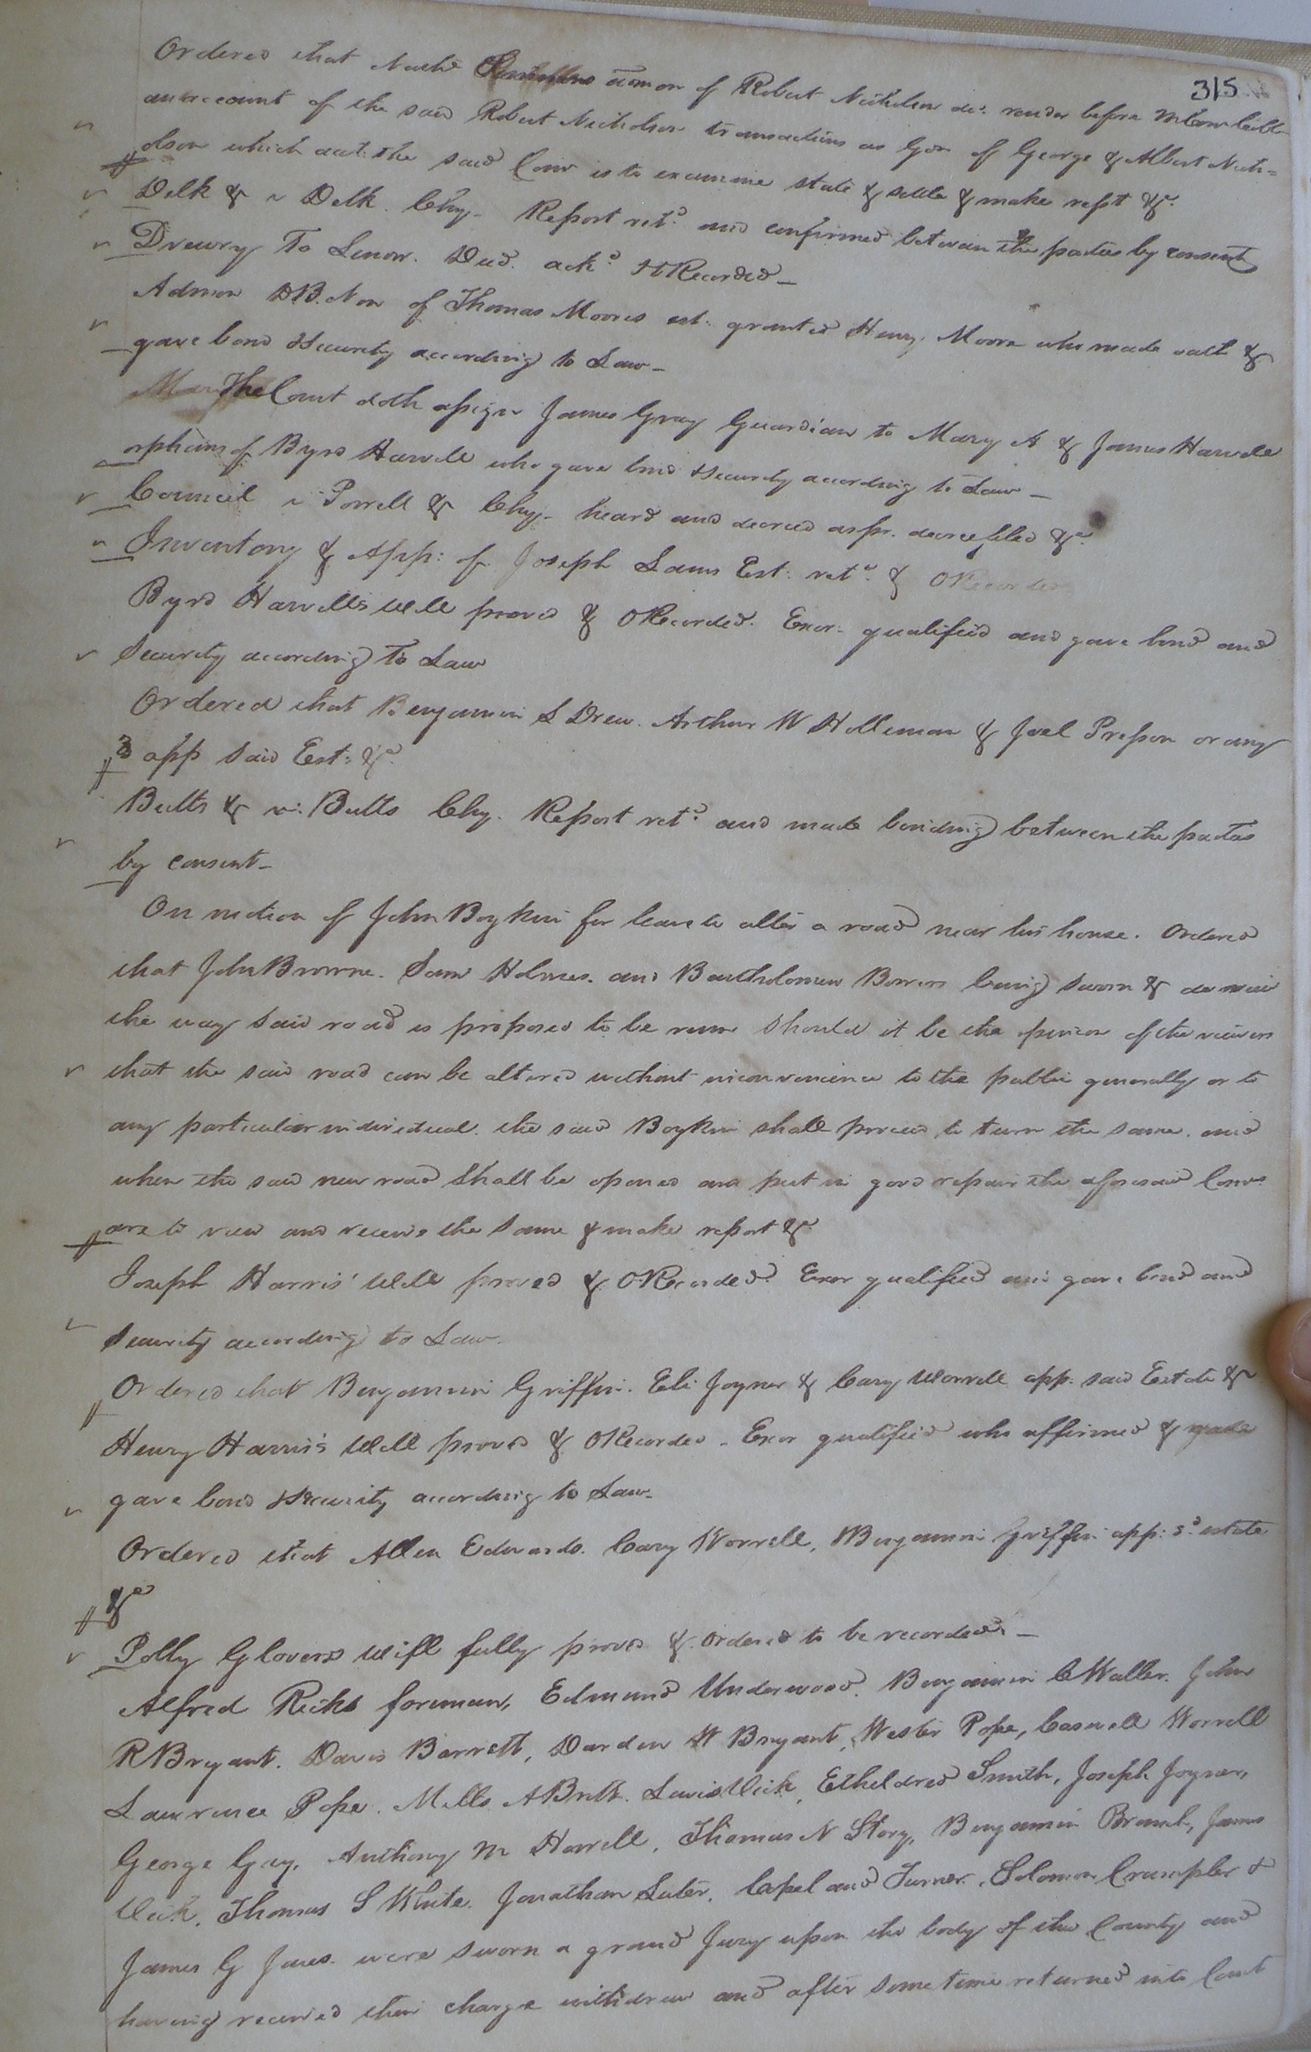 315
Ordered that Nathl Simmons admor of Robert Nicholson decd. render before
an account of the said Robert Nicholson transactions as Gdn of George & Albert Nich=
olson which acct. the said Comr is to examine state & settle & make rept &c.
Delk & v Delk. Chy. Report retd. and confirmed between the parties by consent
Drewry To Simon. Deed. ackd. & ORecorded—
Admon DB.Non of Thomas Moores est. granted Henry. Moore who made oath &
gave bond & security according to Law—
The Court doth assign James Gray Guardian to Mary A & James Harvell
orphans of Byrd Harvell who gave bond & security according to Law—
Council v. Powell & Chy. heard and decreed as pr. decree filed &c.
Inventory & App: of Joseph Lanes Est: retd. & ORecorded
Byrd Harvells Will proved & ORecorded. Exor. qualified and gave bond and
Security according to Law
Ordered that Benjamin S Drew. Arthur W Holleman & Joel Presson or any
3 app said Est: &c.
Butts & v: Butts Chy. Report retd. and made binding between the parties
by consent—
On motion of John Boykin for leave to alter a road near his house. Ordered
that John Browne. Sam Holmes. and Bartholomew Bowers being sworn & do view
the way said road is proposed to be run should it be the opinion of the viewers
that the said road can be altered without inconvenience to the public generally or to
any particular individual. the said Boykin shall proceed to turn the same. and
when the said new road shall be opened and put in good repair the aforesaid Comrs
are to view and receive the same & make report &c
Joseph Harris' Will proved & ORecorded. Exor qualified and gave bond and
security according to Law.
Ordered that Benjamin Griffin. Eli Joyner & Cary Worrell app. said Estate &c
Henry Harris's Will proved & ORecorded. Exor qualified who affirmed & made
gave bond & security according to Law.
Ordered that Allen Edwards. Cary Worrell, Benjamin Griffin app: sd. estate
&c
Polly Glovers Will fully proved & Ordered to be recorded.—
Alfred Ricks foreman, Edmund Underwood. Benjamin C Waller. John
R Bryant. Davis Barrett, Darden W Bryant, Wester Pope, Caswell Worrell
Lawrence Pope. Mills A Britt. Lewis Vick, Etheldred Smith, Joseph Joyner,
George Gay, Anthony M Harvell, Thomas N Story, Benjamin Branch, James
Vick, Thomas S White. Jonathan Luter, Copeland Turner, Solomon Crumpler &
James G Jones. were sworn a grand Jury upon the body of this County and
having received their charge withdrew and after sometime returned into Court